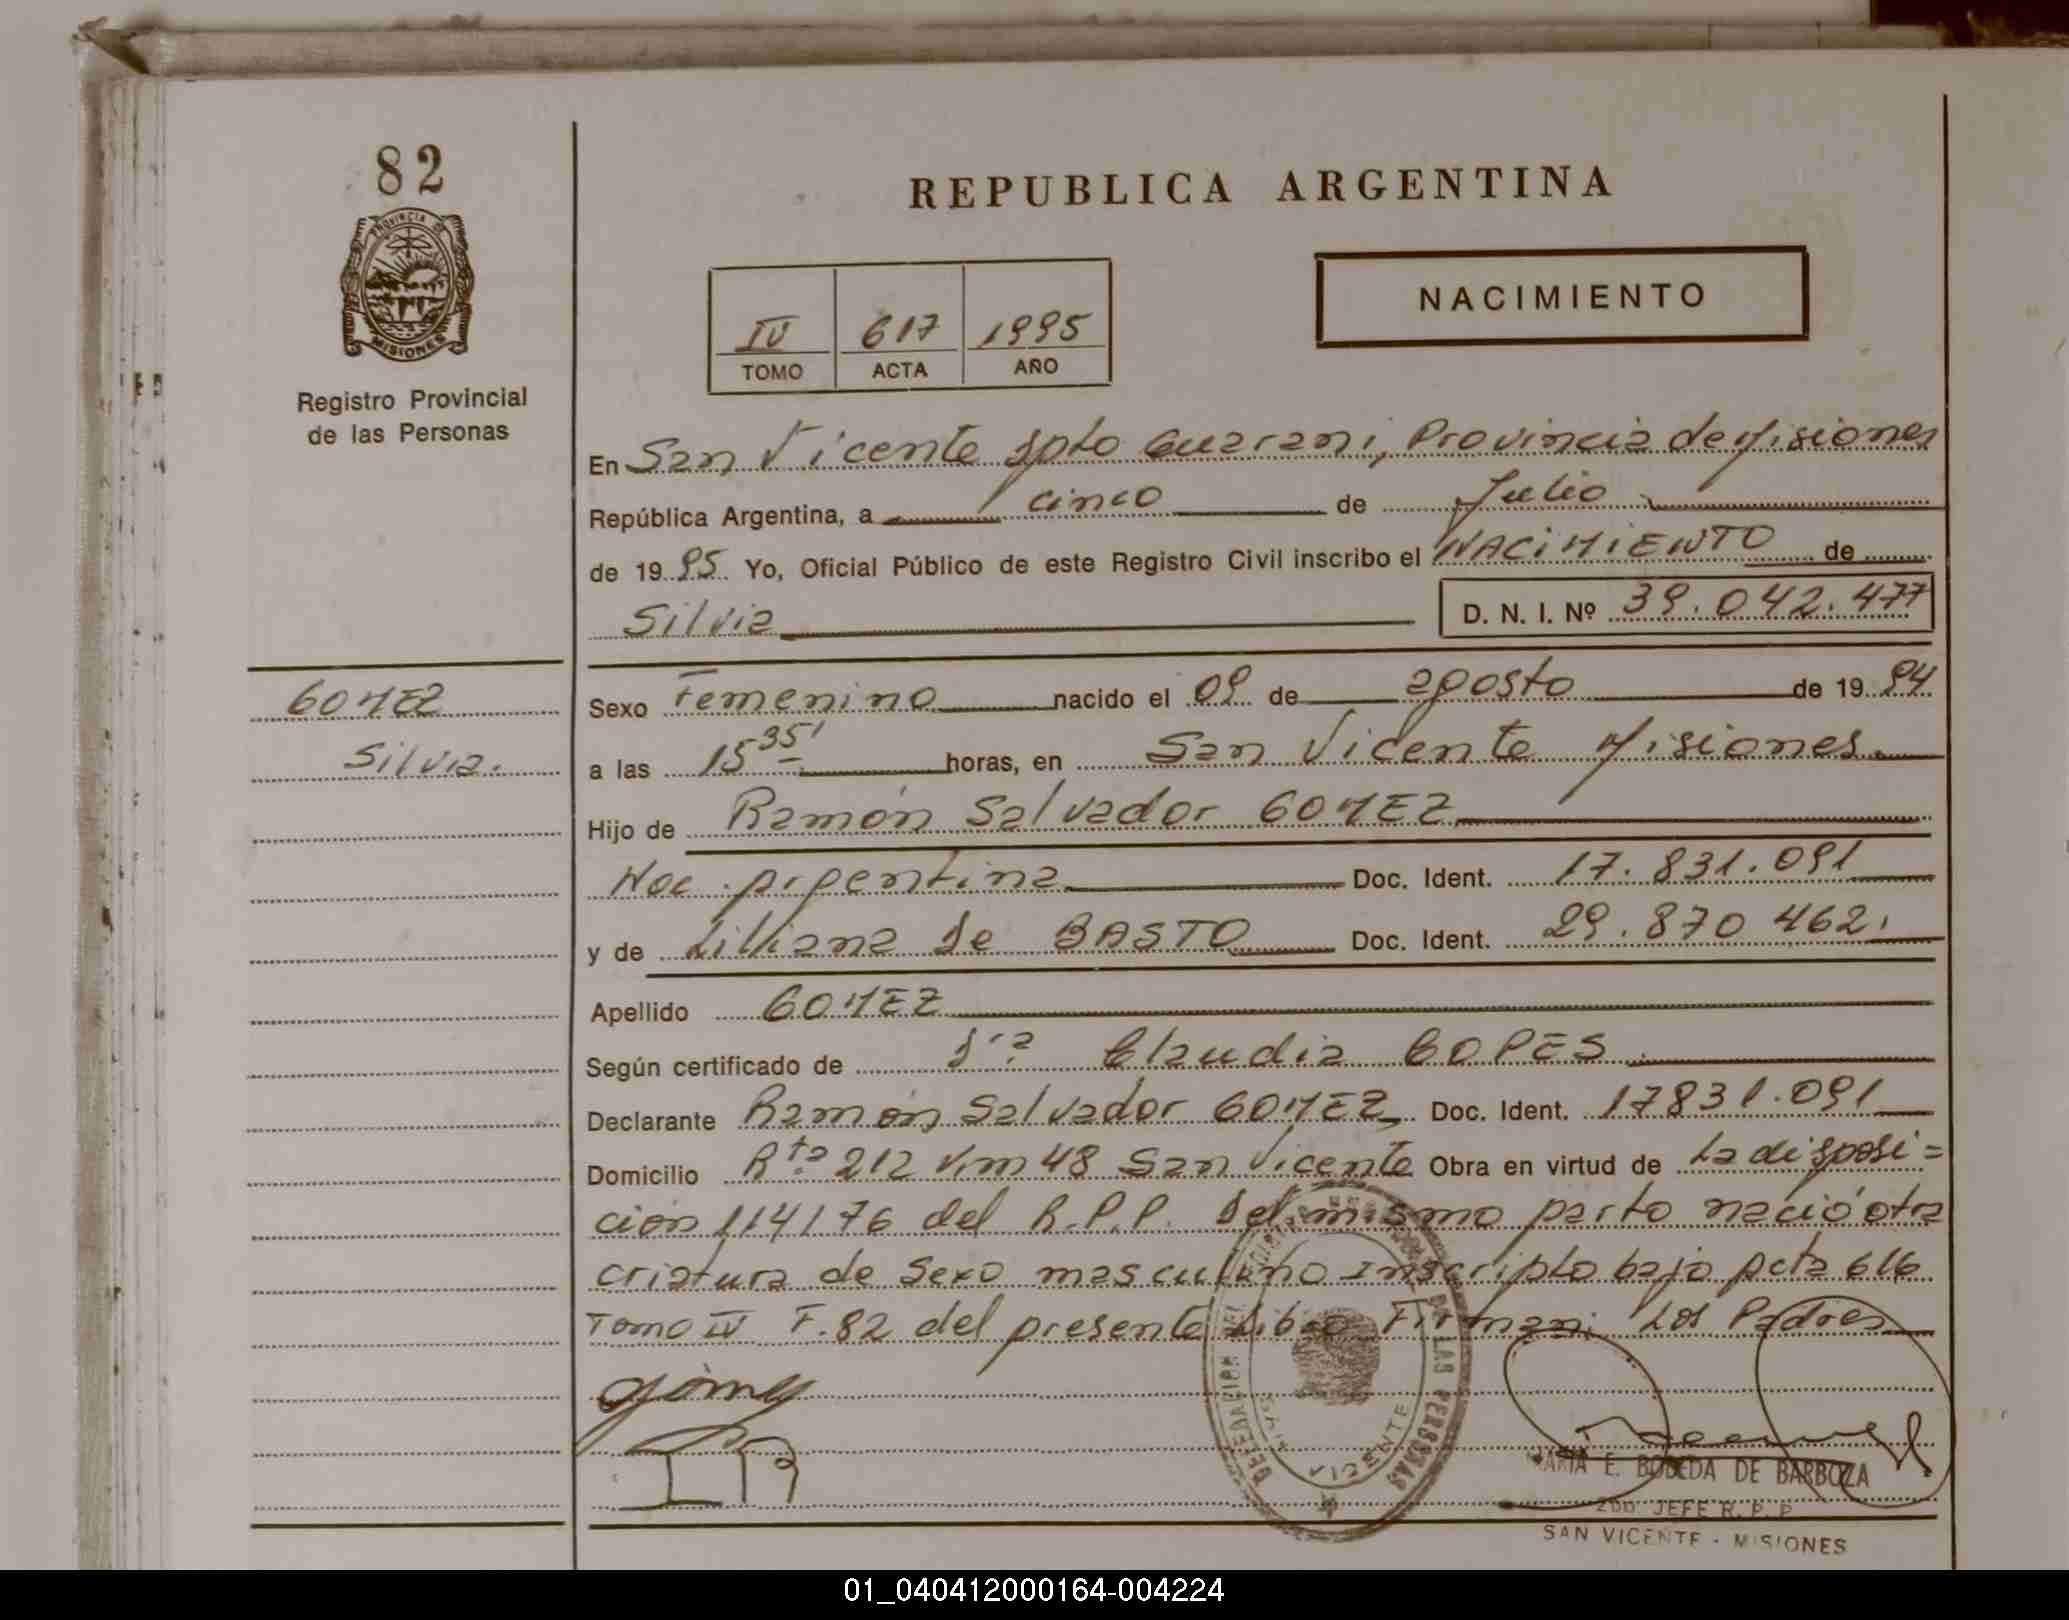 82
REPUBLICA ARGENTINA
PROVINCIA DE
MISIONES
NACIMIENTO
IV 617 1995
TOMO ACTA AÑO
Registro Provincial
de las Personas
En San Vicente Dpto Guarani, Provincia de Misiones
República Argentina, a cinco de Julio
de 1995 Yo, Oficial Público de este Registro Civil inscribo el NACIMIENTO de
Silvia D. N. I. Nº 39.042.477
GOMEZ
Silvia.
Sexo Femenino nacido el 09 de agosto de 1994
a las 15 35' horas, en San Vicente Misiones.
Hijo de Ramón Salvador GOMEZ
Nac. Argentina Doc. Ident. 17.831.091
y de Liliana De BASTO Doc. Ident. 29.870 462.
Apellido GOMEZ
Según certificado de Dra Claudia COPES
Declarante Ramón Salvador GOMEZ Doc. Ident. 17831.091
Domicilio Rta 212 Km 48 San Vicente Obra en virtud de La disposi=
ción 114176 del R.P.P. Del mismo parto nació otra
criatura de sexo masculino Inscripto bajo Acta 616
Tomo IV F.82 del presente Libro Firman: Los Padres
DELEGACION DE LAS PERSONAS
SAN VICENTE
MARIA E. BOBEDA DE BARBOZA
2DO. JEFE R. P. P.
SAN VICENTE - MISIONES
01_040412000164-004224